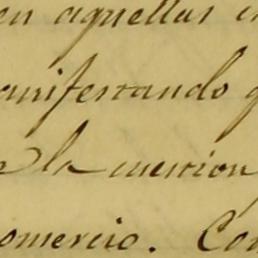 en aquellas
anifestando
la mencion
omercio. Con